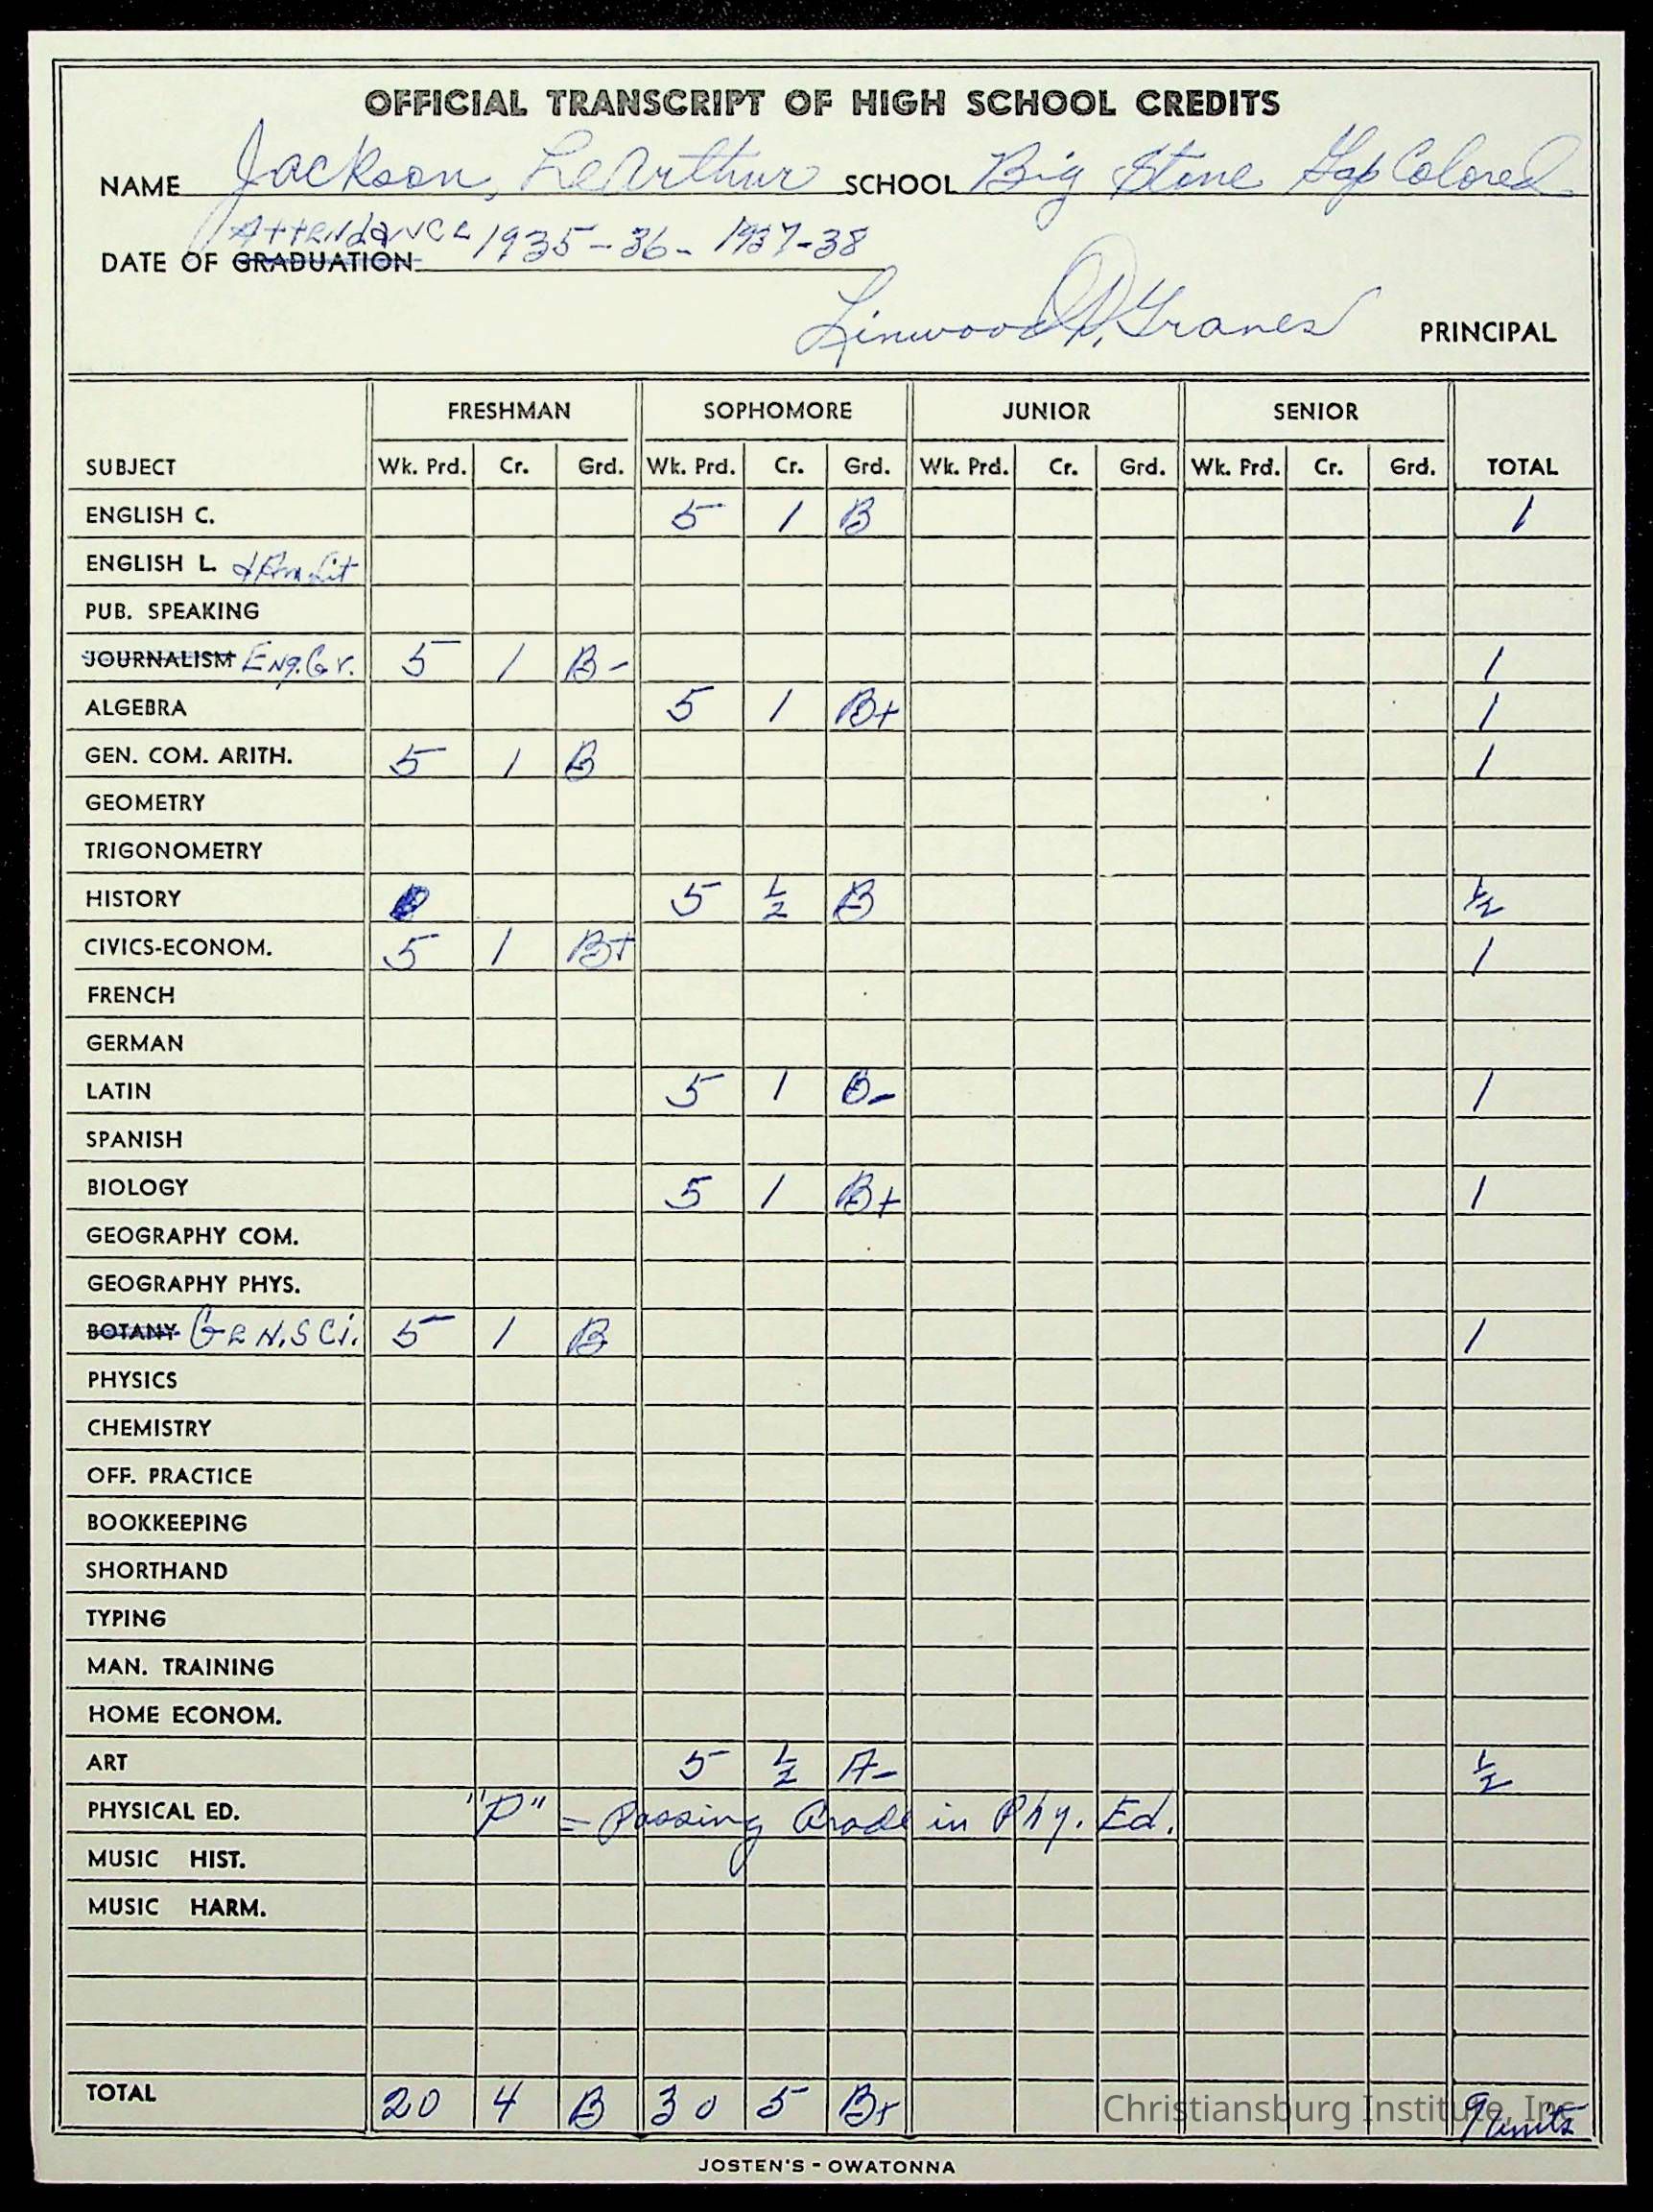 OFFICIAL TRANSCRIPT OF HIGH SCHOOL CREDITS
NAME Jackson, LeArthur SCHOOL Big Stone Gap Colored
Attendance
DATE OF GRADUATION 1935-36- 1937-38
Linwood D. Graves PRINCIPAL
FRESHMAN SOPHOMORE JUNIOR SENIOR
SUBJECT Wk. Prd. Cr. Grd. Wk. Prd. Cr. Grd. Wk. Prd. Cr. Grd. Wk. Prd. Cr. Grd. TOTAL
ENGLISH C. 5 1 B 1
ENGLISH L. & Am. Lit
PUB. SPEAKING
JOURNALISM Eng. Gr. 5 1 B- 1
ALGEBRA 5 1 B+ 1
GEN. COM. ARITH. 5 1 B 1
GEOMETRY
TRIGONOMETRY
HISTORY 5 1/2 B 1/2
CIVICS-ECONOM. 5 1 B+ 1
FRENCH
GERMAN
LATIN 5 1 B- 1
SPANISH
BIOLOGY 5 1 B+ 1
GEOGRAPHY COM.
GEOGRAPHY PHYS.
BOTANY GEN. SCi. 5 1 B 1
PHYSICS
CHEMISTRY
OFF. PRACTICE
BOOKKEEPING
SHORTHAND
TYPING
MAN. TRAINING
HOME ECONOM.
ART 5 1/2 A- 1/2
PHYSICAL ED. "P" = Passing Grade in Phy. Ed.
MUSIC HIST.
MUSIC HARM.
TOTAL 20 4 B 30 5 B+ 9 units
Christiansburg Institute, Inc.
JOSTEN'S - OWATONNA